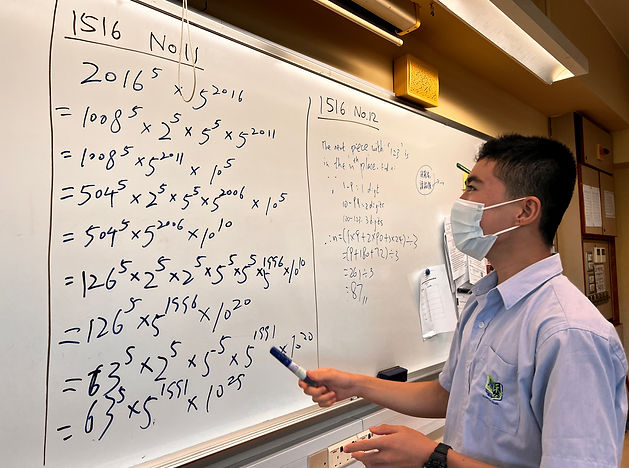 1516 No.11
2016⁵ × 5²⁰¹⁶
= 1008⁵ × 2⁵ × 5⁵ × 5²⁰¹¹
= 1008⁵ × 5²⁰¹¹ × 10⁵
= 504⁵ × 2⁵ × 5⁵ × 5²⁰⁰⁶ × 10⁵
= 504⁵ × 5²⁰⁰⁶ × 10¹⁰
= 126⁵ × 2⁵ × 2⁵ × 5⁵ × 5⁵ × 5¹⁹⁹⁶ × 10¹⁰
= 126⁵ × 5¹⁹⁹⁶ × 10²⁰
= 63⁵ × 2⁵ × 5⁵ × 5¹⁹⁹¹ × 10²⁰
= 63⁵ × 5¹⁹⁹¹ × 10²⁵
1516 No.12
The next piece with "1=3" is
in the nth place.
1-9 = 1 digit
10-99 = 2 digits
3 digits
∴ n = (1×9 + 2×90 + 3×24) ÷ 3
= (9+180+72) ÷ 3
= 261 ÷ 3
= 87